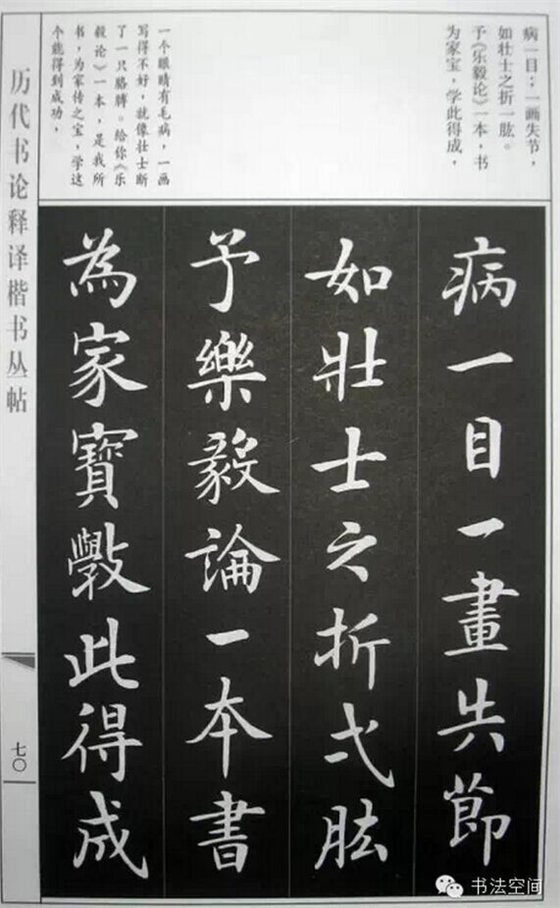 病一目；一画失节，
如壮士之折一肱。
予《乐毅论》一本，书
为家宝，学此得成，
一个眼睛有毛病，一画
写得不好，就像壮士断
了一只胳膊。给你《乐
毅论》一本，是我所
书，为家传之宝，学这
个能得到成功，
病一目一畫失節
如壯士之折弌肱
予樂毅論一本書
為家寶斆此得成
历代书论释译楷书丛帖
七〇
书法空间